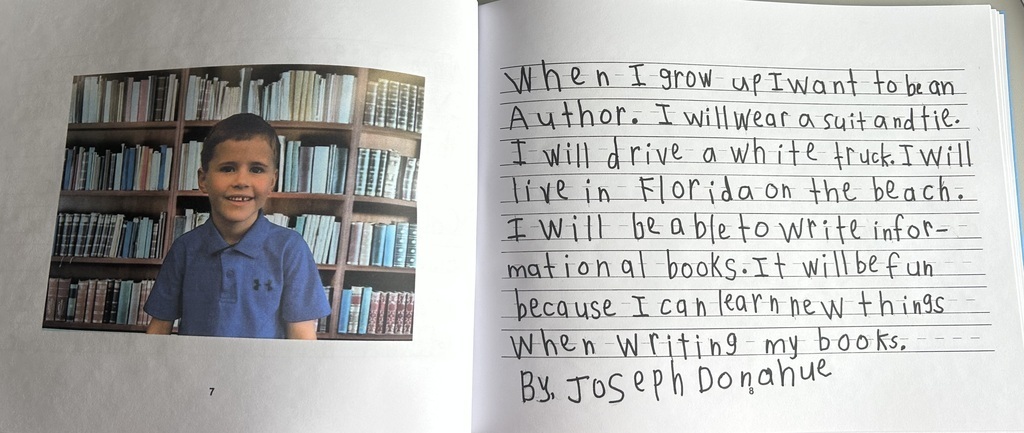 When I grow up I want to be an
Author. I will wear a suit and tie.
I will drive a white truck. I will
live in Florida on the beach.
I will be able to write infor-
mational books. It will be fun
because I can learn new things
when writing my books.
By, Joseph Donahue
7
8